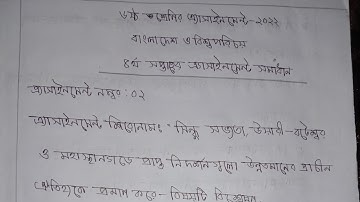 ৬ষ্ঠ শ্রেণির এ্যাসাইনমেন্ট-২০২২
বাংলাদেশ ও বিশ্বপরিচয়
৪র্থ সপ্তাহের এ্যাসাইনমেন্ট সমাধান
এ্যাসাইনমেন্ট নম্বর: ০২
এ্যাসাইনমেন্ট শিরোনামঃ সিন্ধু সভ্যতা, উয়ারী-বটেশ্বর
ও মহাস্থানগড়ে প্রাপ্ত নিদর্শনগুলো উন্নতমানের প্রাচীন
ঐতিহ্যকে প্রমাণ করে- বিষয়টি বিশ্লেষণ